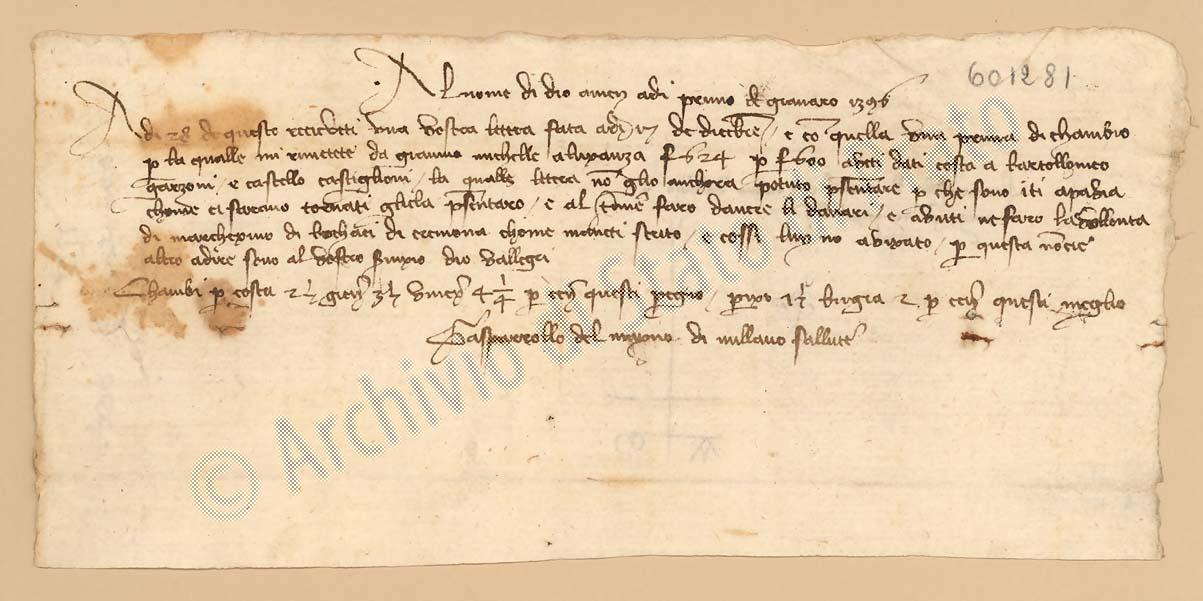 601281
Al nome di dio amen adi primo de gienaro 1396
Adi 28 de questo recieveti una vostra letera fata adi 17 de dicebre / e co quella una prima di chambio
p la qualle mi rimetete da giovano michelle alupanza f 624 p f 600 aveti dati costa a bartollomeo
garzoni / e castello castiglioni / la qualle letera no glio anchora potuto psentare p che sono iti apavia
chome ci sarano tornati gliela psentaro / e al tme faro davere li danari / e avuti ne faro la vollonta
di marchexino di de cremona chome aveti scrito / e cossi luy no avixato / p questa no cie
altro adire sono al vostro srvixio dio vallegri
Chambi p costa 2 1/2 gien 3 1/2 vinex 4 1/4 p cen questi pegio / parixo 1 1/2 brugia 2 p cen questi meglio
Gasparrollo del mayno di millano sallute
© Archivio di Stato di Prato